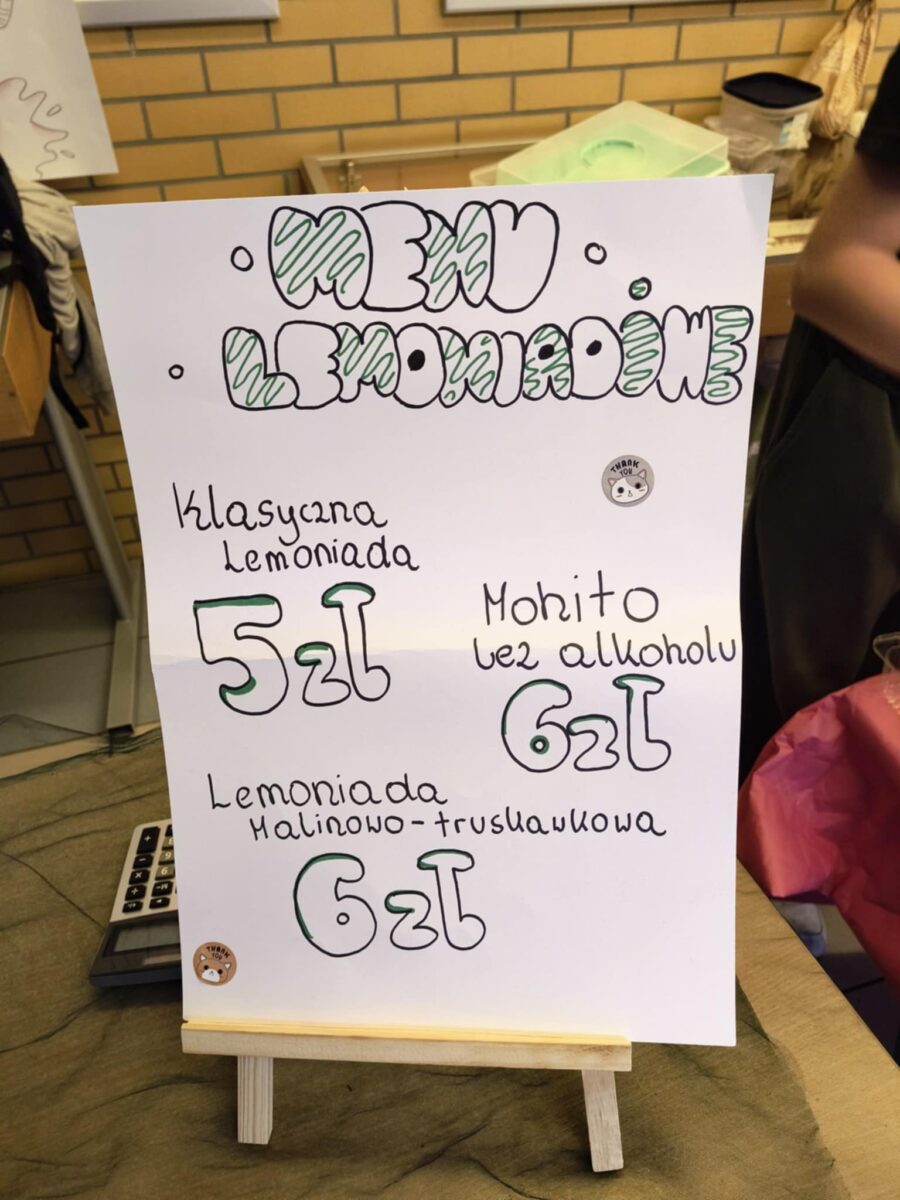 MENU
LEMONIADOWE
THANK
YOU
Klasyczna
Lemoniada
5 zł
Mohito
bez alkoholu
6 zł
Lemoniada
Malinowo-truskawkowa
6 zł
THANK
YOU